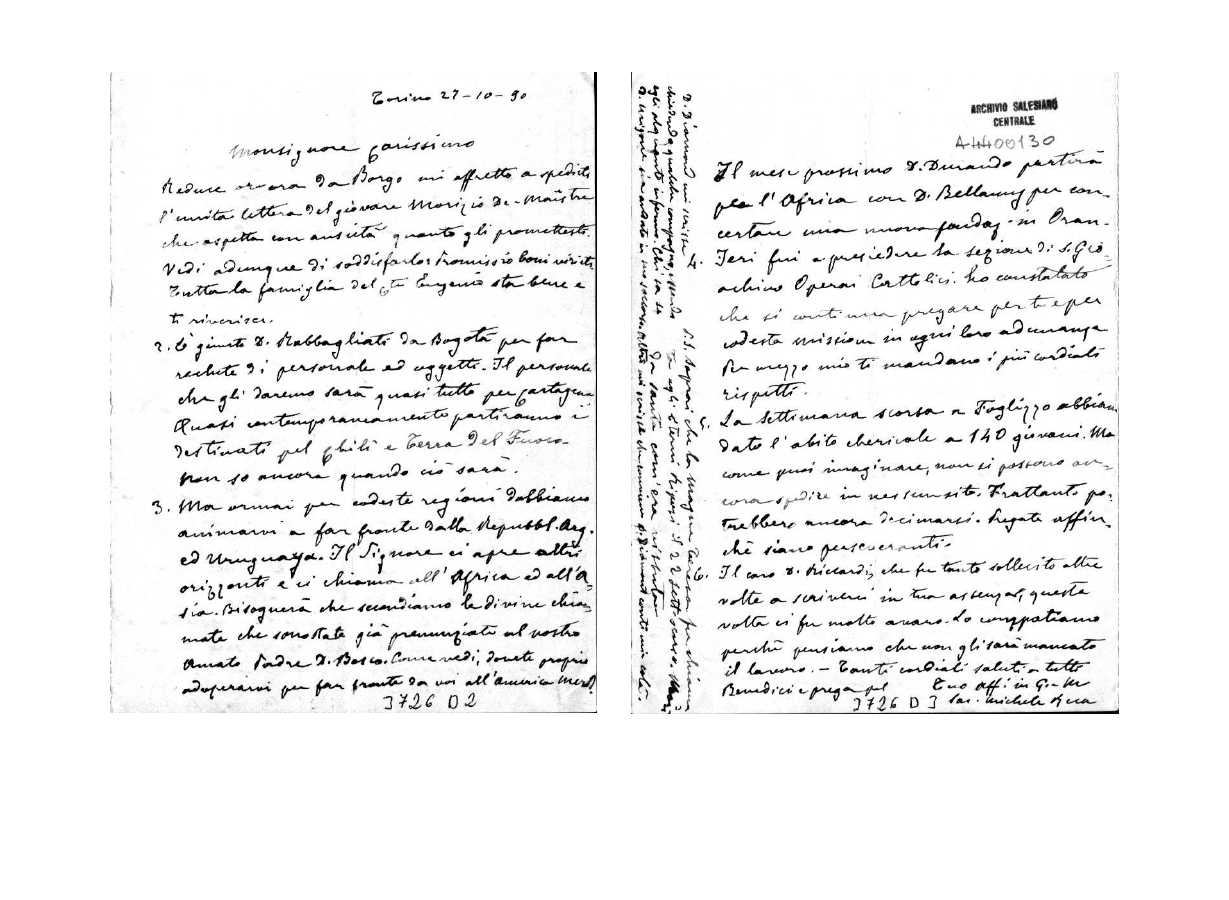 Torino 27-10-90
Monsignore Carissimo
Reduce or ora da Borgo mi affretto a spedirti
l'unita lettera del giovane Morizio De-Maistre
che aspetta con ansietà quanto gli promettesti.
Vedi adunque di soddisfarlo: Promissio boni viri etc
Tutta la famiglia del Cte Eugenio sta bene e
ti riverisce.
2. È giunto D. Rabbagliati da Bogotà per far
reclute di personale ed oggetti. Il personale
che gli daremo sarà quasi tutto per Cartagena
Quasi contemporaneamente partiranno i
destinati pel Chilì e Terra del Fuoco.
Non so ancora quando ciò sarà.
3. Ma ormai per codeste regioni dobbiamo
animarvi a far fronte dalla Repubbl. Arg.
ed Uruguaya. Il Signore ci apre altri
orizzonti e ci chiama all'Africa ed all'A-
sia. Bisognerà che secondiamo le divine chia-
mate che sono state già prenunziate al nostro
amato Padre D. Bosco. Come vedi, dovete proprio
adoperarvi per far fronte da voi all'America Merid.
3726 D 2
ARCHIVIO SALESIANO
CENTRALE
A4400130
Il mese prossimo D. Durando partirà
per l'Africa con D. Bellamy per con-
certare una nuova fondaz. in Oran.
4. Ieri fui a presiedere la sezione di S. Gio-
achino Operai Cattolici. Ho constatato
che si continua pregare per te e per
codesta missione in ogni loro adunanza
Per mezzo mio ti mandano i più cordiali
rispetti.
5. La settimana scorsa a Foglizzo abbiam
dato l'abito chericale a 140 giovani. Ma
come puoi imaginare, non si possono an-
cora spedire in nessun sito. Frattanto po-
trebbero ancora decimarsi. Pregate affin-
chè siano perseveranti.
6. Il caro D. Riccardi, che fu tanto sollecito altre
volte a scriverci in tua assenza, questa
volta ci fu molto avaro. Lo compatiamo
perchè pensiamo che non gli sarà mancato
il lavoro. - Tanti cordiali saluti a tutti
Benedici e prega pel Tuo Aff. in G. e M.
Sac. Michele Rua
3726 D 3
D. Diamond mi scrisse
chiedendo qualche compagno, essendo
egli alquanto infermo. Chi sa se
D. Migone sia andato in suo soccorso, altri mi scrisse che nemmeno D. Diamond conti uscir colà.
P.S. Saprai che la magna Teresa fu chiama-
ta agli eterni riposi il 22 sett. scorso. Morì
da santa com'era vissuta.